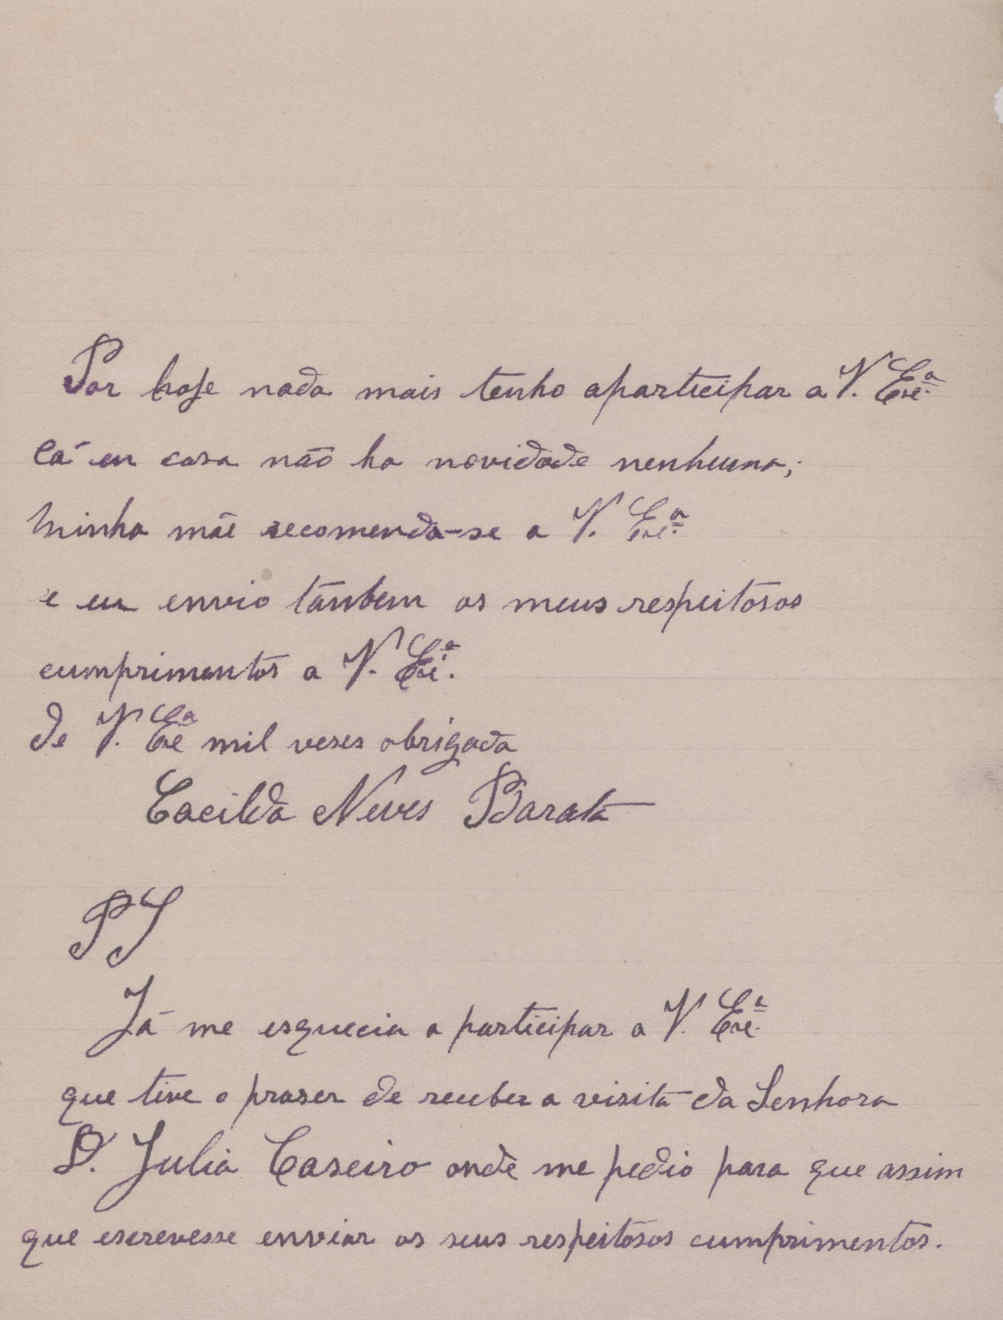 Por hoje nada mais tenho aparticipar a V. Exc.ª
Cá em casa não ha novidade nenhuma;
Minha mãe recomenda-se a V. Exc.ª
e eu envio tãnbem os meus respeitosos
cumprimentos a V. Exc.ª
de V. Exc.ª mil veses obrigada
Cacilda Neves Barata
PS
Já me esquecia a participar a V. Exc.ª
que tive o praser de receber a visita da Senhora
D. Julia Caseiro onde me pedio para que assim
que escrevesse enviar os seus respeitosos cumprimentos.